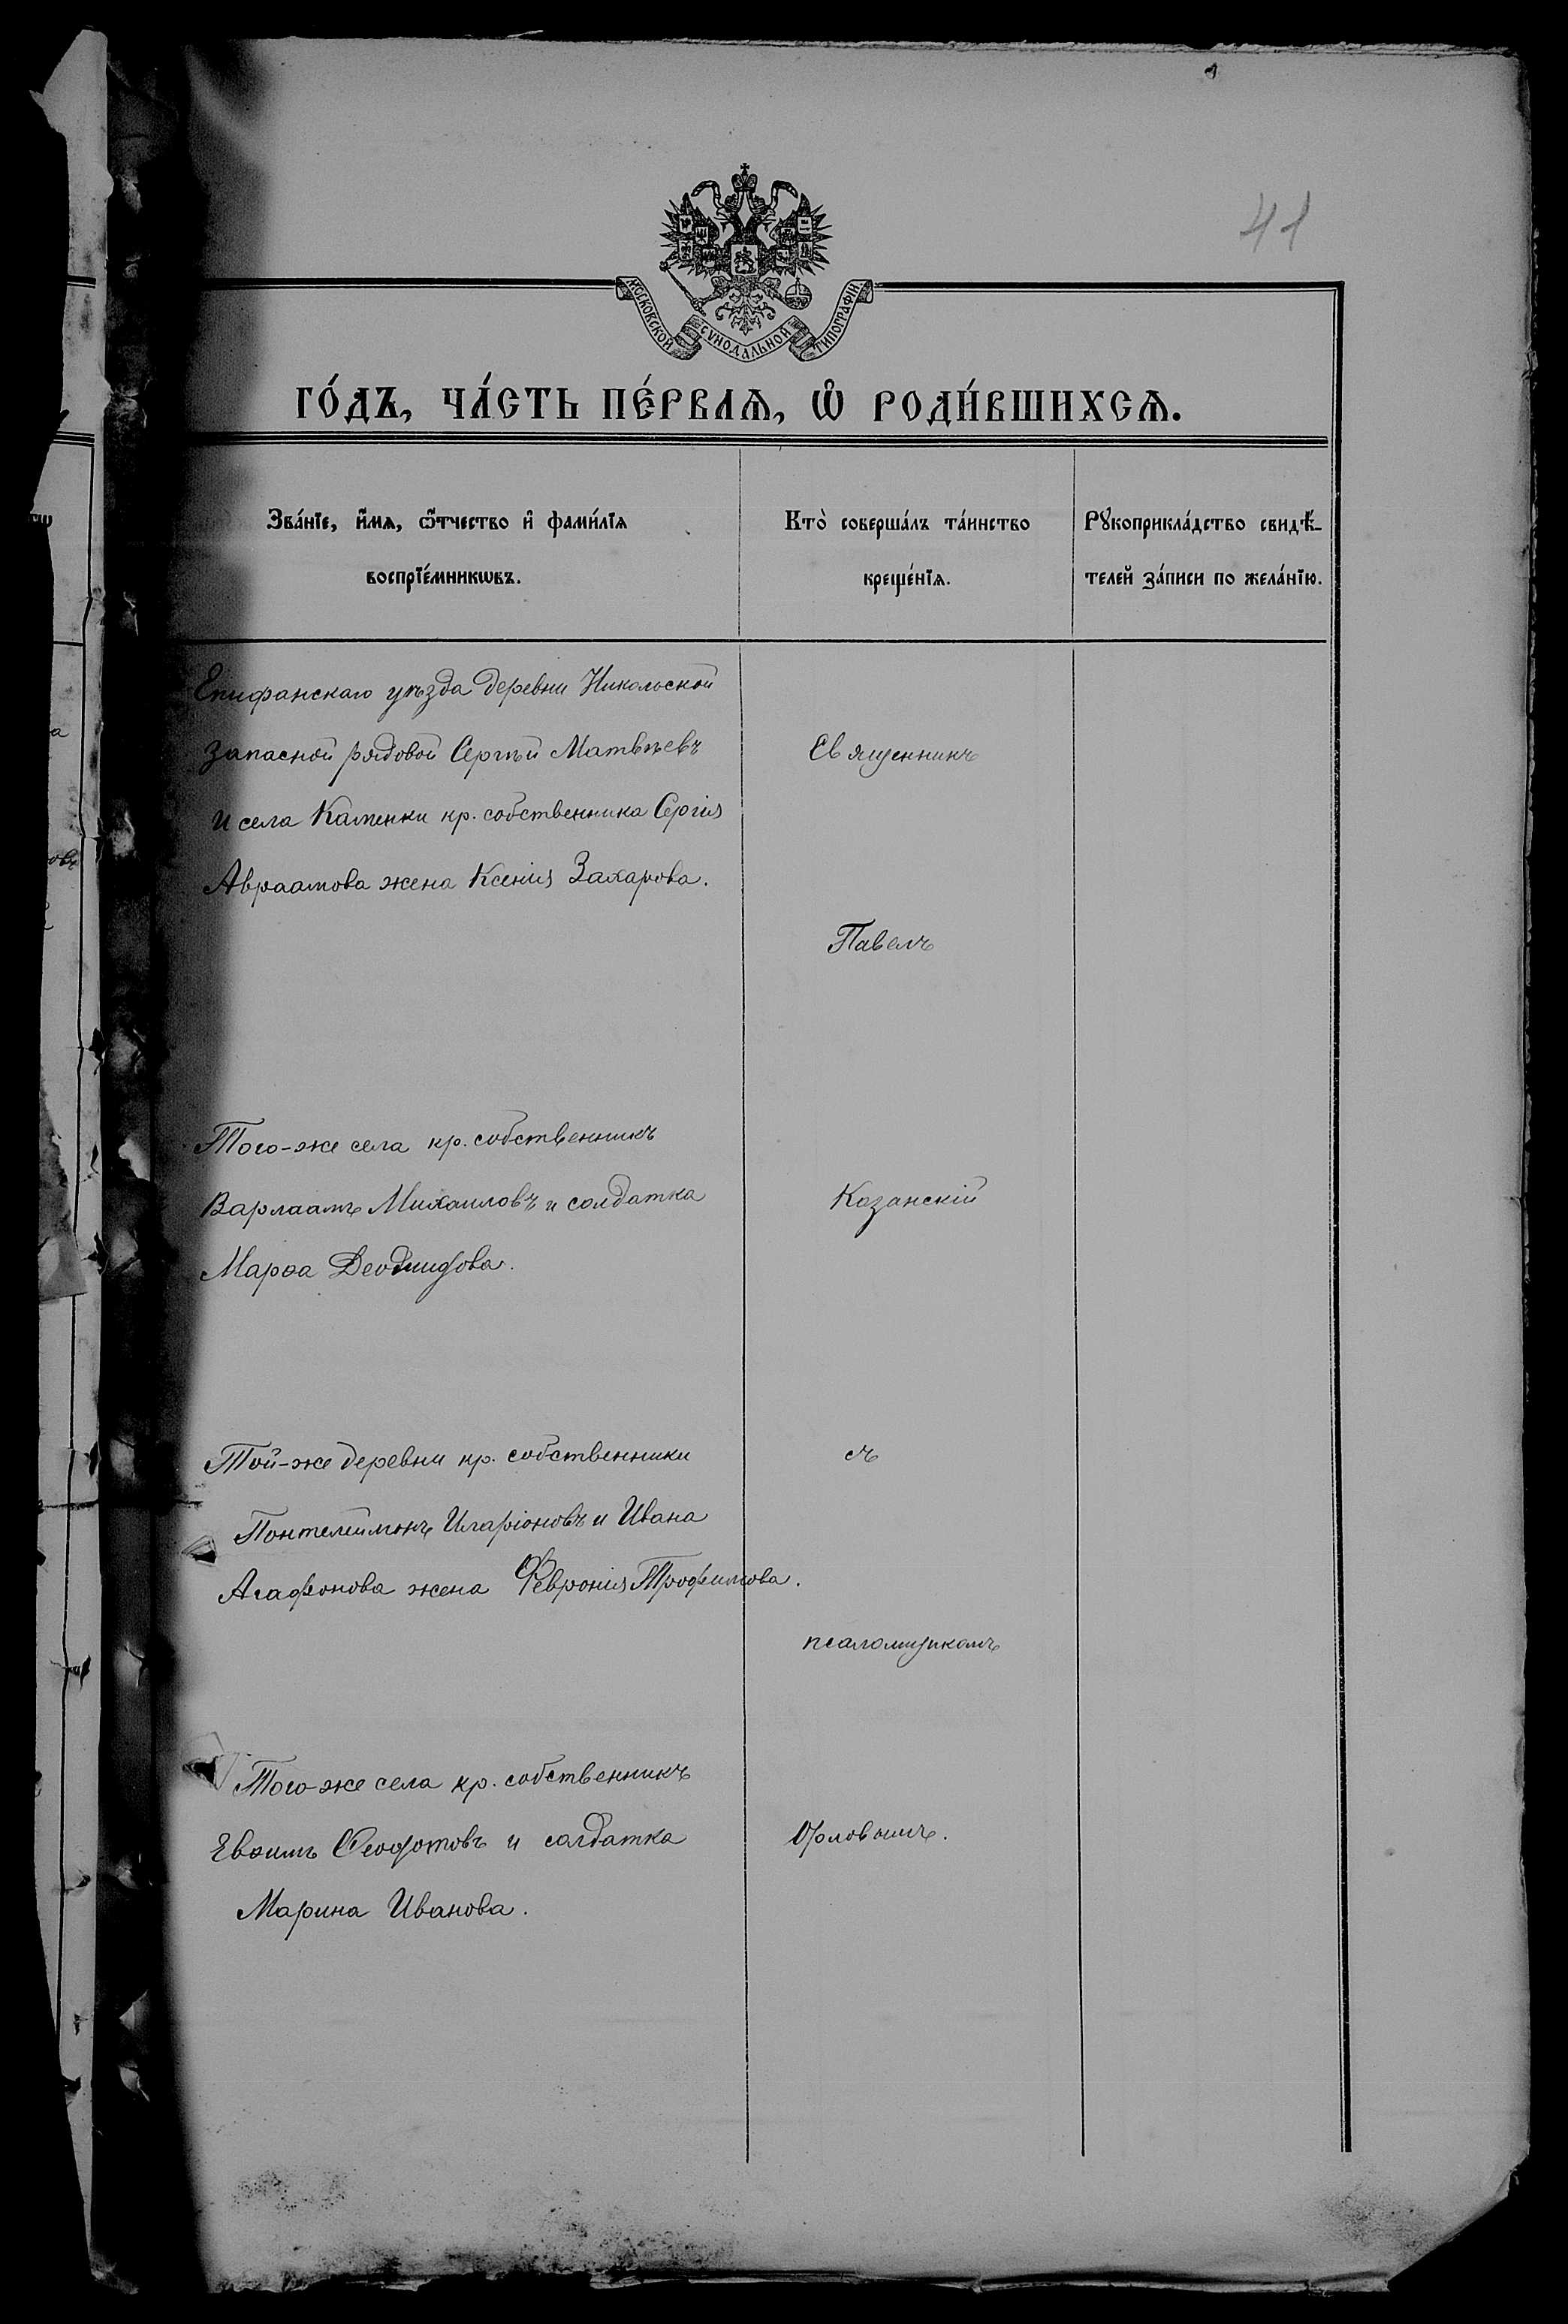 41
МОСКОВСКОЙ СѴНОДАЛЬНОЙ ТИПОГРАФІИ
ГО́ДЪ, ЧА́СТЬ ПЕ́РВАѦ, Ѡ҆ РОДИ́ВШИХСѦ.
Зва́нїе, и҆́мѧ, ѻ҆́тчество и҆ фами́лїѧ
воспрїе́мникѡвъ.
Кто̀ соверша́лъ та́инство
креще́нїѧ.
Рꙋкоприкла́дство свидѣ́-
телей за́писи по жела́нїю.
Епифанскаго уѣзда деревни Никольской
запасной рядовой Сергѣй Матвѣевъ
и села Каменки кр. собственника Сергія
Авраамова жена Ксенія Захарова.
Того-же села кр. собственникъ
Варлаамъ Михаиловъ и солдатка
Марѳа Деодмидова.
Той-же деревни кр. собственники
Понтелеймонъ Иларіоновъ и Ивана
Агафонова жена Февронія Трофимова.
Того-же села кр. собственникъ
Евѳимъ Феофотовъ и солдатка
Марина Иванова.
Священникъ
Павелъ
Казанскій
съ
псаломщикомъ
Орловымъ.